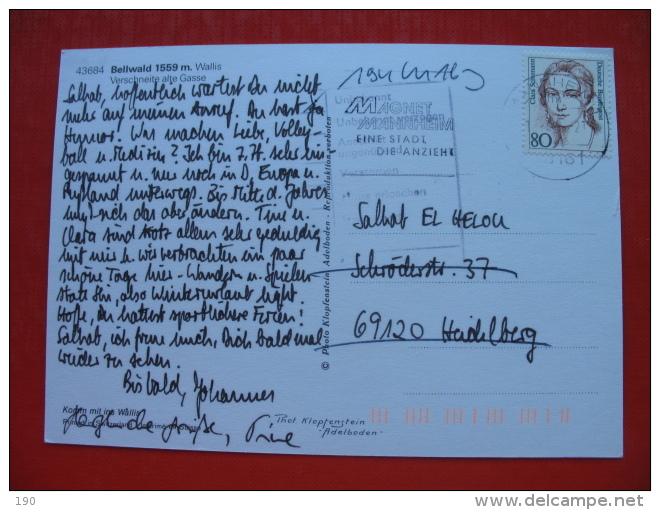 43684 Bellwald 1559 m. Wallis
Verschneite alte Gasse
Salhab, hoffentlich wartest Du nicht
mehr auf meinen Anruf. Du hast ja
Humor. Was machen Liebe, Volley-
ball u. Medizin? Ich bin z. Zt. sehr ein-
gespannt u. nur noch in D, Europa u.
Rußland unterwegs. Bis Mitte d. Jahres
muß sich das aber ändern. Tine u.
Clara sind trotz allem sehr geduldig
mit mir u. wir verbrachten ein paar
schöne Tage hier - Wandern u. Spielen
statt Ski, also Winterurlaub light.
Hoffe, Du hattest sportlichere Ferien!
Salhab, ich freue mich, Dich bald mal
wieder zu sehen.
Bis bald, Johannes
Grüße, Tine
Komm mit ins Wallis
© Photo Klopfenstein Adelboden - Reproduktion verboten
Unbekannt
Verstorben
erloschen
MAGNET
MANNHEIM
EINE STADT,
DIE ANZIEHT
Deutsche Bundespost
80
Salhab EL HELOU
Schröderstr. 37
69120 Heidelberg
Phot. Klopfenstein
-Adelboden-
190
www.delcampe.net